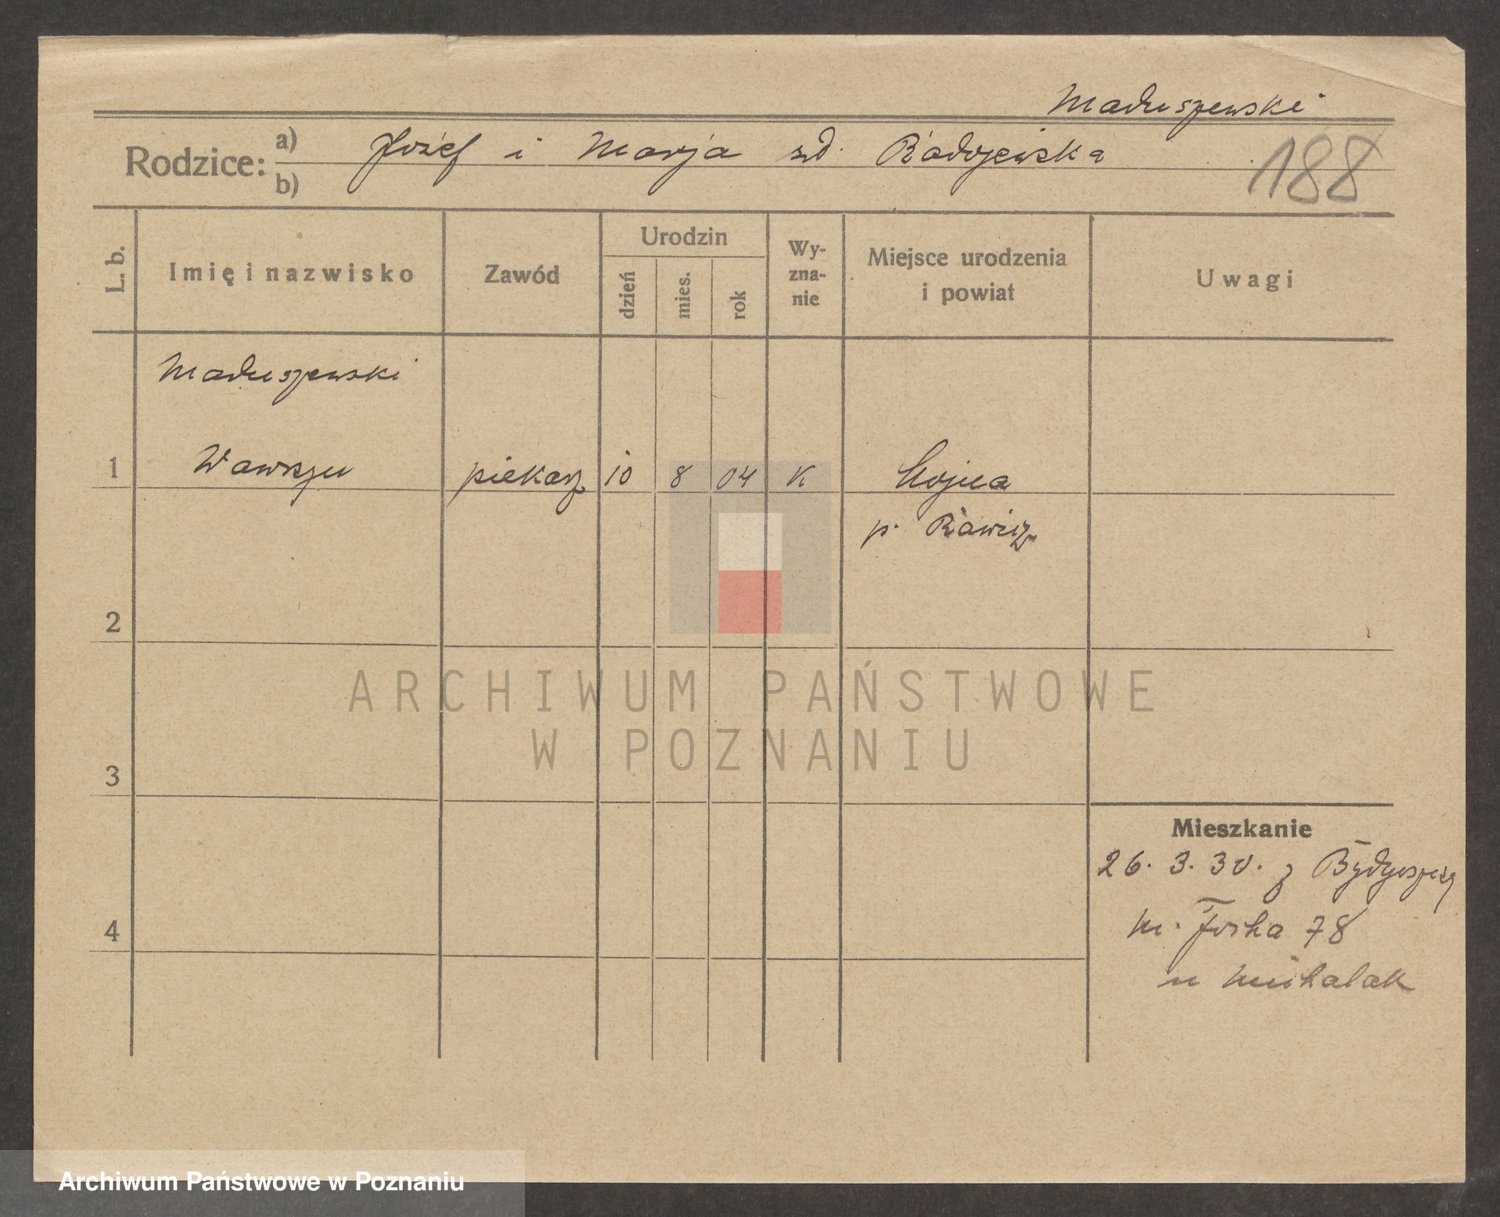 Maduszewski
Rodzice: a) Józef i Marja zd. Radojewska
b)
188
L. b.
Imię i nazwisko
Zawód
Urodzin
dzień
mies.
rok
Wy-
zna-
nie
Miejsce urodzenia
i powiat
Uwagi
Maduszewski
1 Wawrzyn piekarz 10 8 04 K
p. Rawicz
2
3
4
ARCHIWUM PAŃSTWOWE
W POZNANIU
Mieszkanie
26. 3. 30. z Bydgoszczy
78
u Michalak
Archiwum Państwowe w Poznaniu